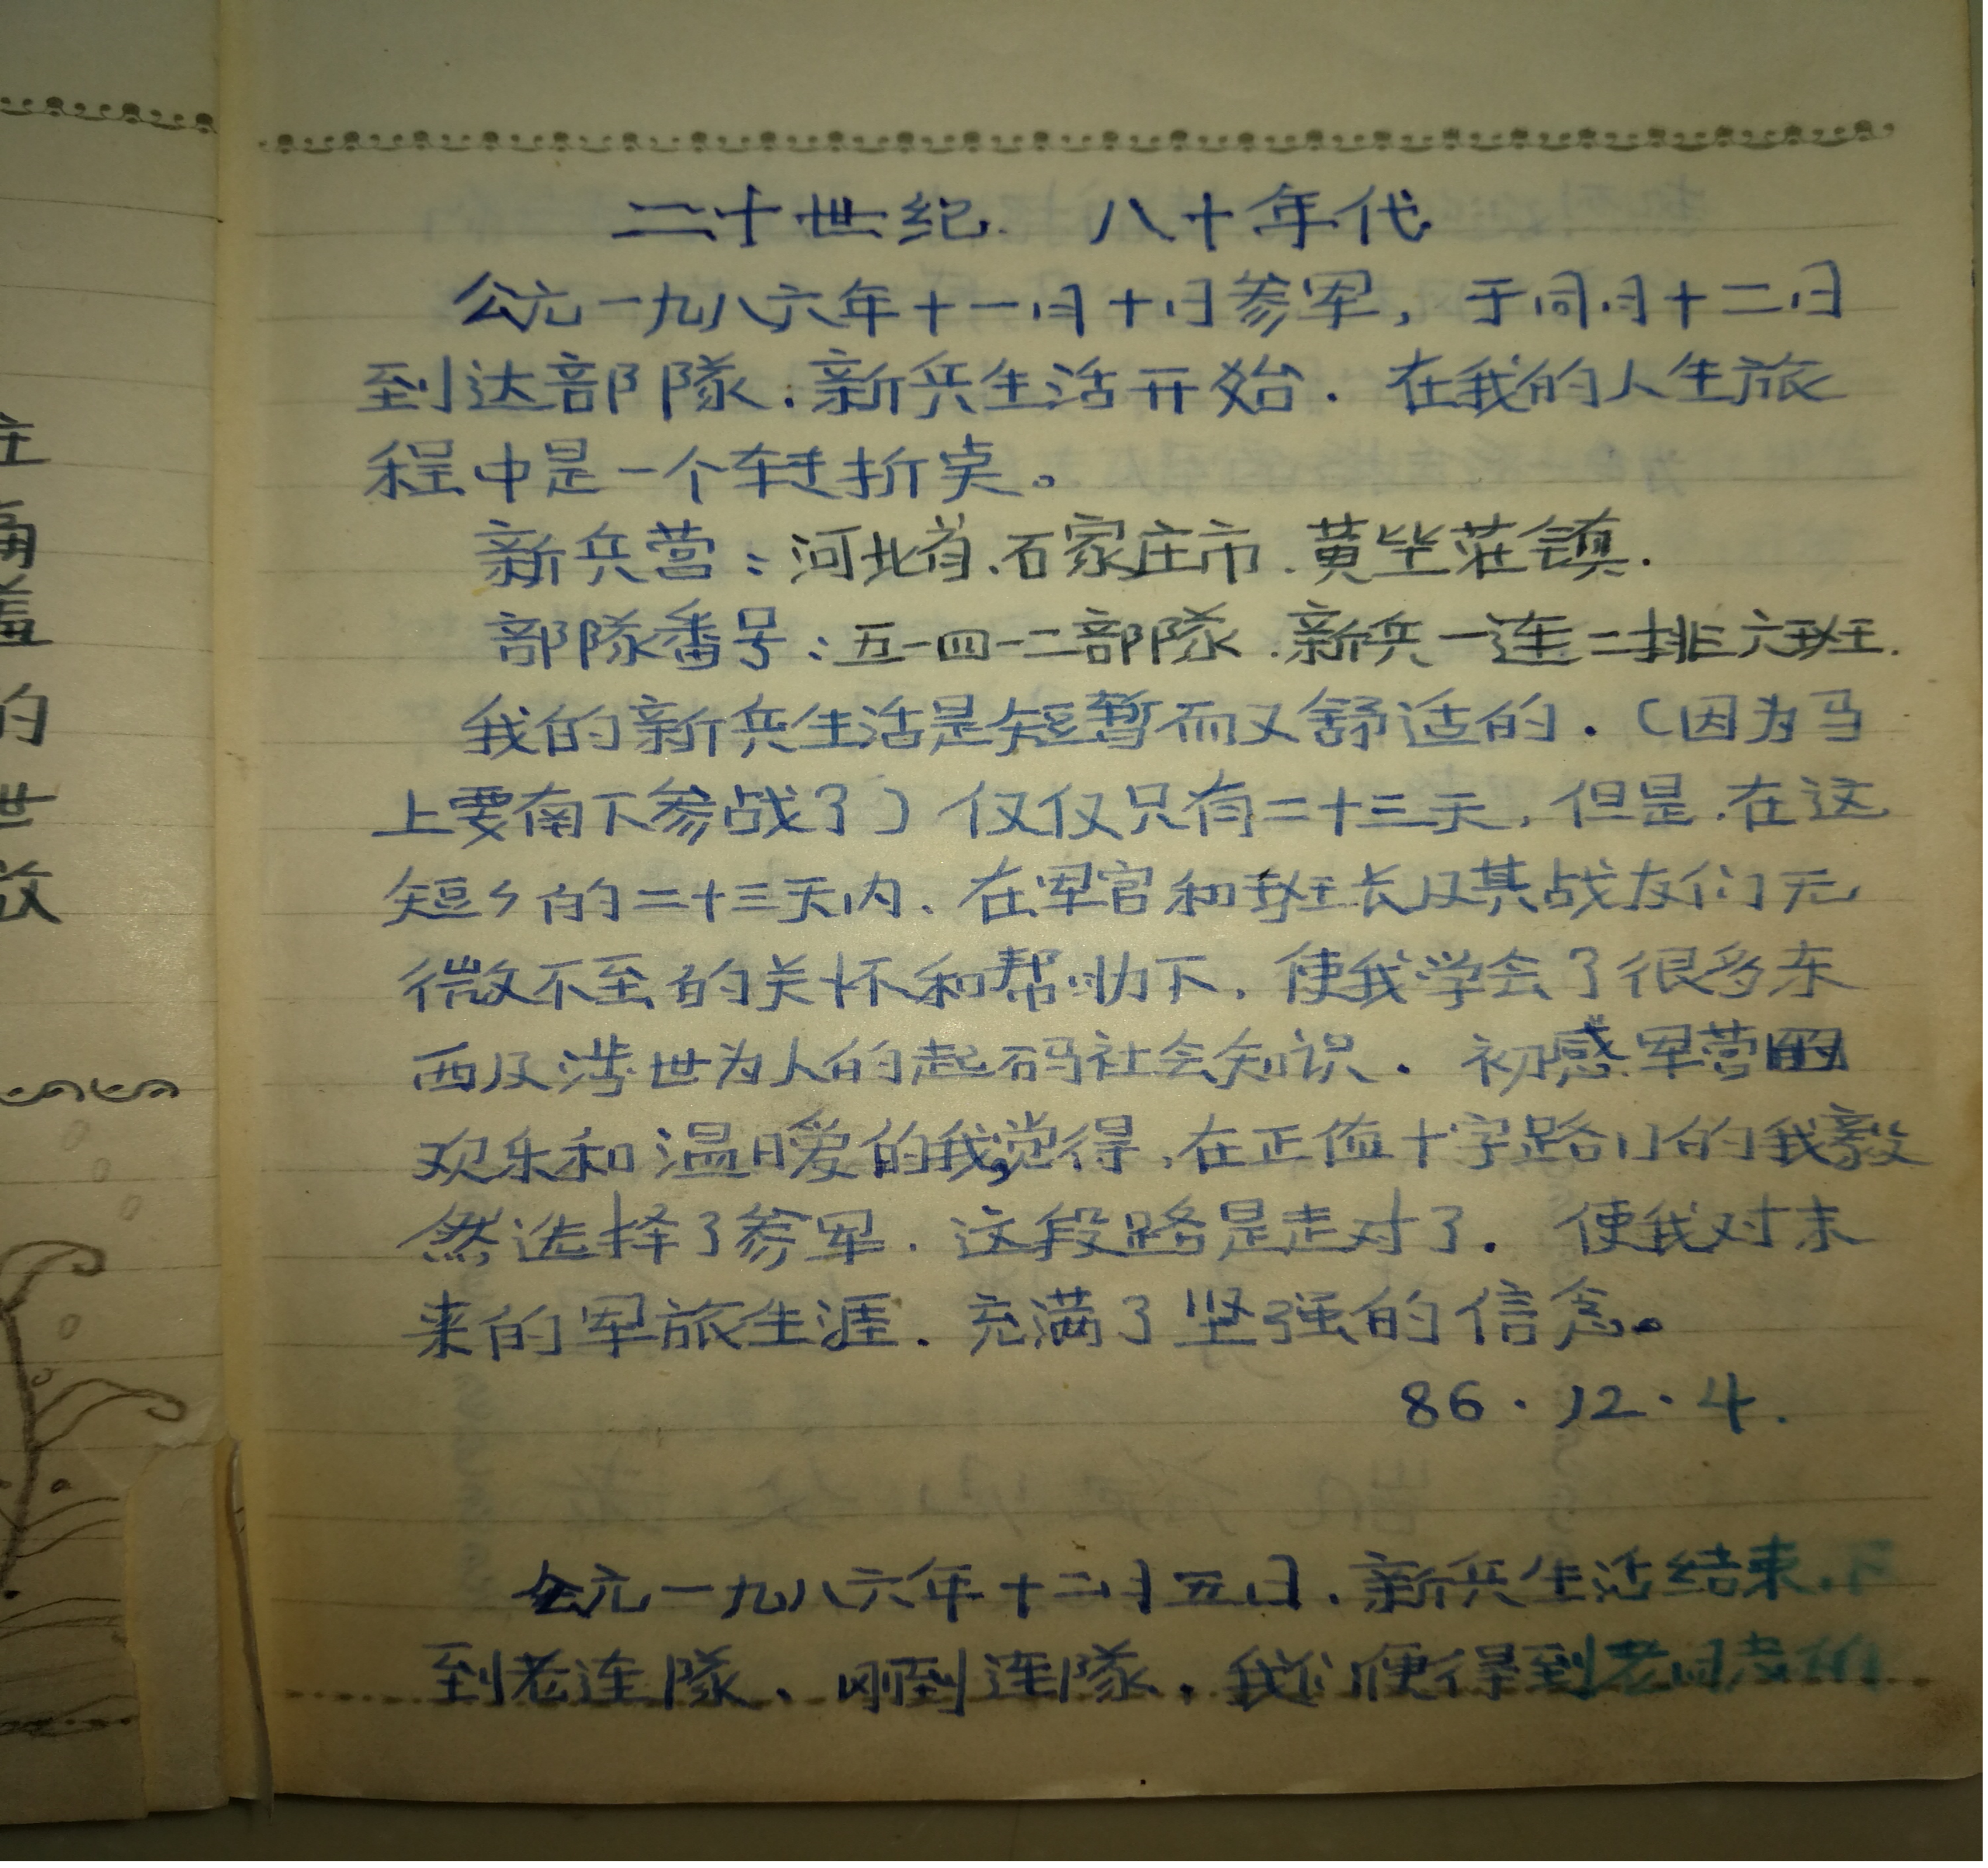 二十世纪 八十年代
公元一九八六年十一月十日参军，于同月十二日
到达部隊.新兵生活开始.在我的人生旅
程中是一个转折点。
新兵营：河北省.石家庄市.黄坒荘镇.
部隊番号：五一四一二部隊.新兵一连二排六班.
我的新兵生活是短暂而又舒适的.（因为马
上要南下参战了）仅仅只有二十三天,但是.在这
短々的二十三天内、在军官和班长及其战友们无
微不至的关怀和帮助下,使我学会了很多东
西及涉世为人的起码社会知识.初感军营的
欢乐和温暖的我,觉得,在正值十字路口的我毅
然选择了参军.这段路是走对了.使我对未
来的军旅生涯.充满了坚强的信念。
86.12.4.
公元一九八六年十二月五日.新兵生活结束.
到老连隊、刚到连隊,我们便得到老同志的
庄
的
世
放